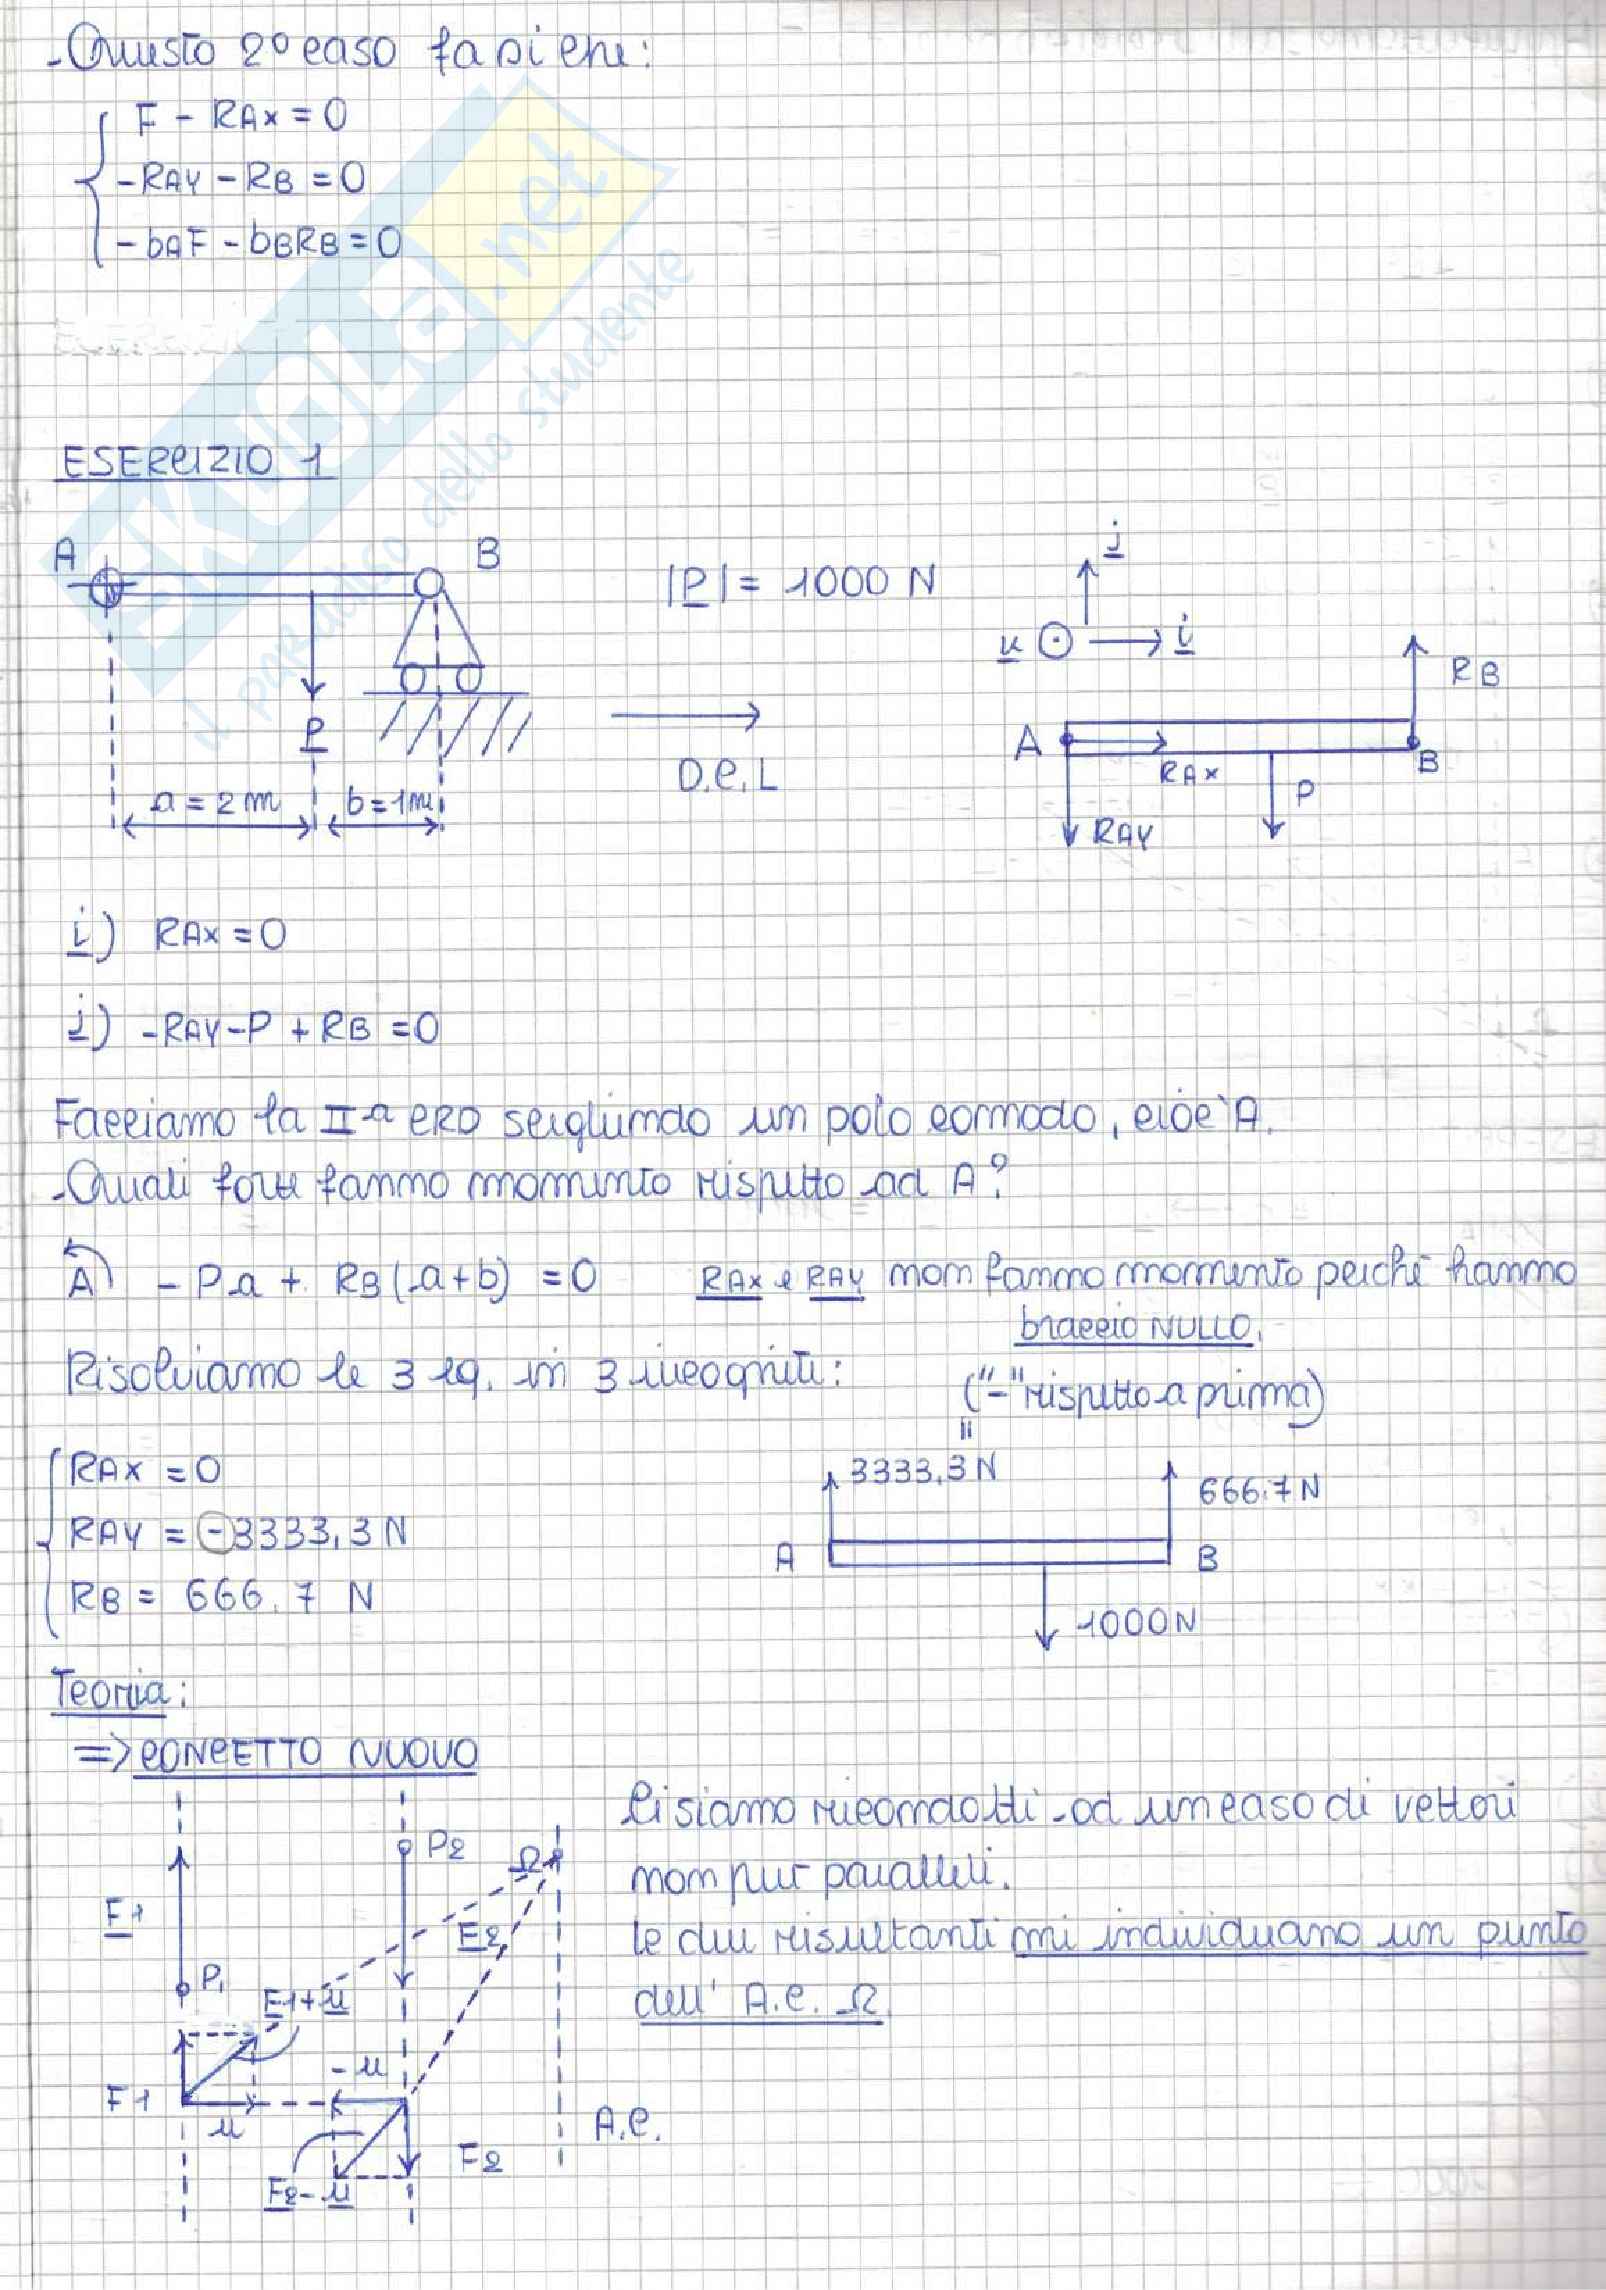 -Questo 2° caso fa sì che:
F - RAX = 0
-RAY - RB = 0
-bAF - bBRB = 0
SKUOLA.net
il paradiso dello studente
ESERCIZIO 1
A
B
|P| = 1000 N
j
k
i
RB
A
RAX
B
P
P
RAY
D.C.L
a = 2 m
b = 1 m
i) RAX = 0
j) -RAY - P + RB = 0
Facciamo la IIª ERD scegliendo un polo comodo, cioè A.
-Quali forze fanno momento rispetto ad A?
A) - Pa + RB(a+b) = 0
RAX e RAY non fanno momento perché hanno
braccio NULLO.
Risolviamo le 3 eq. in 3 incognite:
("-" rispetto a prima)
RAX = 0
RAY = -3333,3 N
RB = 666.7 N
3333,3 N
666.7 N
A
B
1000 N
Teoria:
=> CONCETTO NUOVO
F1
P1
P2
Ω
F2
F1+u
F1
u
-u
F2
F2-u
A.C.
Ci siamo ricondotti ad un caso di vettori
non più paralleli.
Le due risultanti mi individuano un punto
dell' A.C. Ω.